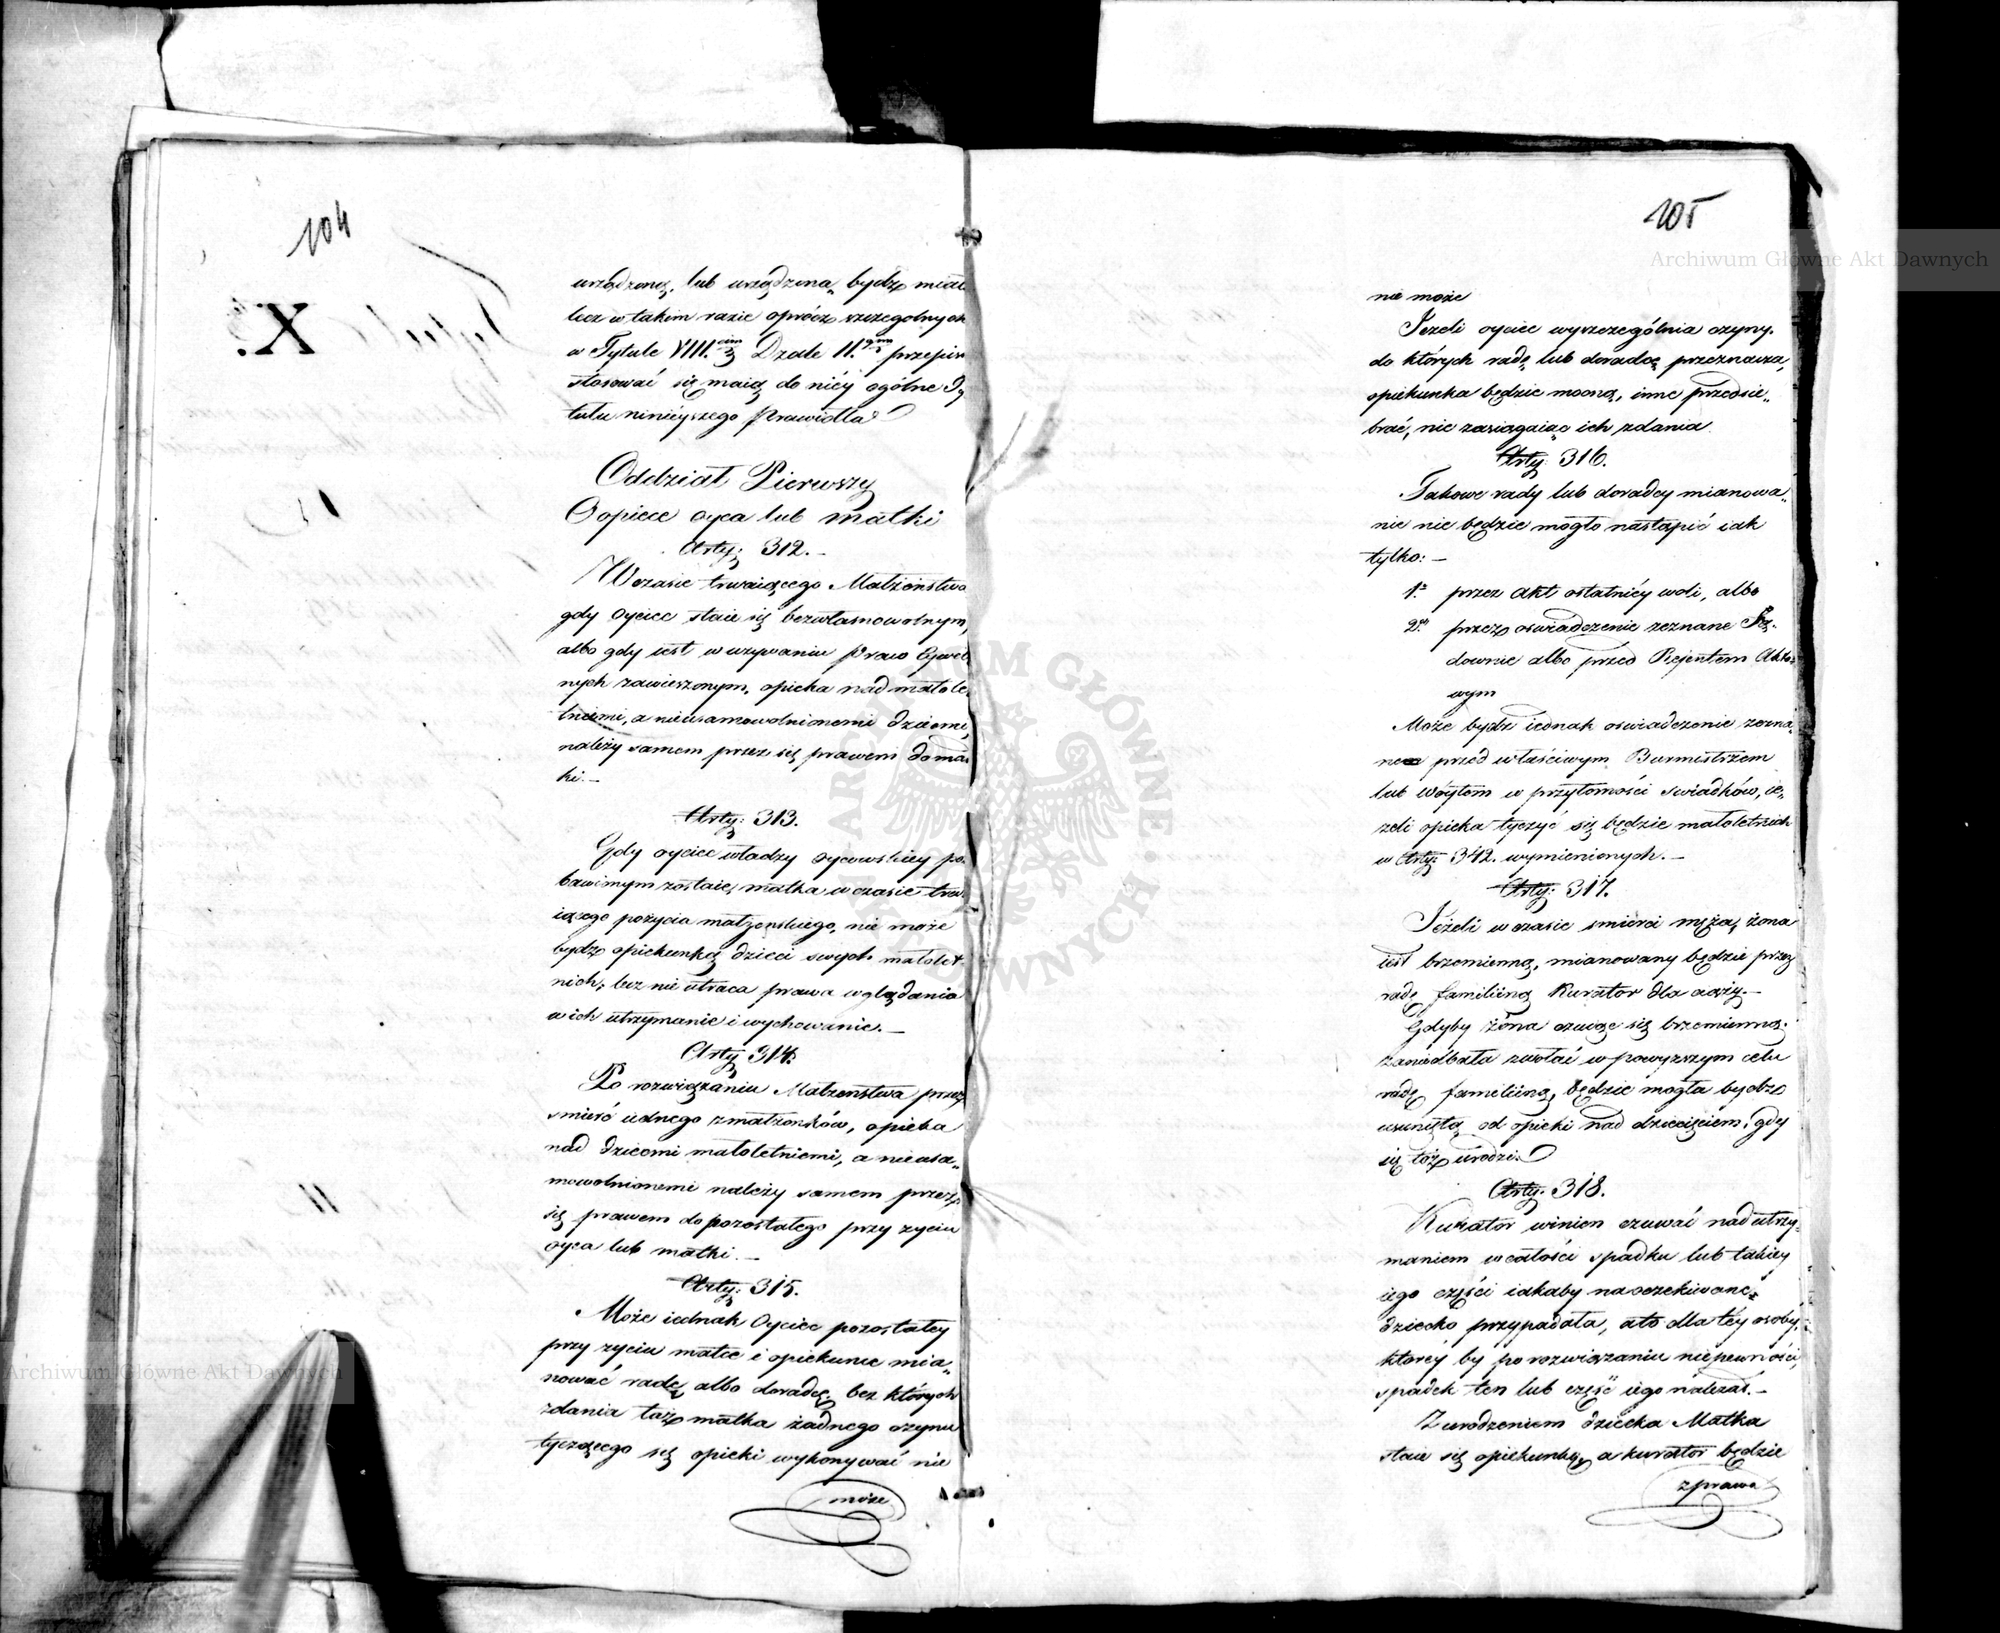 104
X.
urządzoną, lub urządzoną bydź miała
lecz w takim razie oprócz szczególnych
w Tytule VIII. Dziale II. przepisów
stosować się maią do nićy ogólne Ty
tułu ninieyszego Prawidła
Oddział Pierwszy
O opiece oyca lub matki
Arty: 312. –
W czasie trwaiącego Małżeństwa
gdy Oyciec staie się bezwłasnowolnym,
albo gdy iest w używaniu praw Cywil
nych zawieszonym, opieka nad małole
tniemi, a nieusamowolnionemi dziećmi,
należy samem przez się prawem do mat
ki. –
Arty: 313.
Gdy oyciec władzy oycowskiey po
bawionym zostaie, matka w czasie trwa
iącego pożycia małżeńskiego, nie może
bydź opiekunką dzieci swych małolet
nich, lecz nie utraca prawa wglądania
w ich utrzymanie i wychowanie. –
Arty 314.
Po rozwiązaniu Małżeństwa przez
śmierć iednego z małżonków, opieka
nad dziećmi małoletniemi, a nieusa„
mowolnionemi należy samem przez
się prawem do pozostałego przy życiu
oyca lub matki. –
Arty: 315.
Może iednak Oyciec pozostałey
przy życiu matce i opiekunce mia„
nować radę albo doradcę, bez których
zdania taż matka żadnego czynu
tyczącego się opieki wykonywać nie
może
105
nie może
Jeżeli oyciec wyszczególnia czyny,
do których radę lub doradcę przeznacza,
opiekunka będzie mocną, inne przedsię„
brać, nie zasięgaiąc ich zdania.
Arty: 316.
Takowe rady lub doradcy mianowa„
nie nie będzie mogło nastąpić iak
tylko: –
1. przez akt ostatnićy woli, albo
2. przez oświadczenie zeznane Są„
downie albo przed Rejentem Akto
wym
Może bydź iednak oświadczenie zezna„
ne przed właściwym Burmistrzem
lub Wóytem w przytomości świadków, ie„
żeli opieka tyczyć się będzie małoletnich
w Arty: 342. wymienionych. –
Arty: 317.
Jeżeli w czasie śmierci męża, żona
iest brzemienną, mianowany będzie przez
radę familiiną Kurator dla ciąży. –
Gdyby żona czuiąc się brzemienną,
zaniedbała zwołać w powyższym celu
radę familiiną, będzie mogła bydź
usuniętą od opieki nad dziecięciem, gdy
się toż urodzi.
Arty: 318.
Kurator winien czuwać nad utrzy„
maniem w całości spadku lub takiey
iego części iakaby na oczekiwane
dziecko przypadała, a to dla tćy osoby,
którey by po rozwiązaniu niepewności,
spadek ten lub część iego należał. –
Z urodzeniem dziecka Matka
staie się opiekunką, a kurator będzie
z prawa
Archiwum Główne Akt Dawnych
Archiwum Główne Akt Dawnych
ARCHIWUM GŁÓWNE AKT DAWNYCH